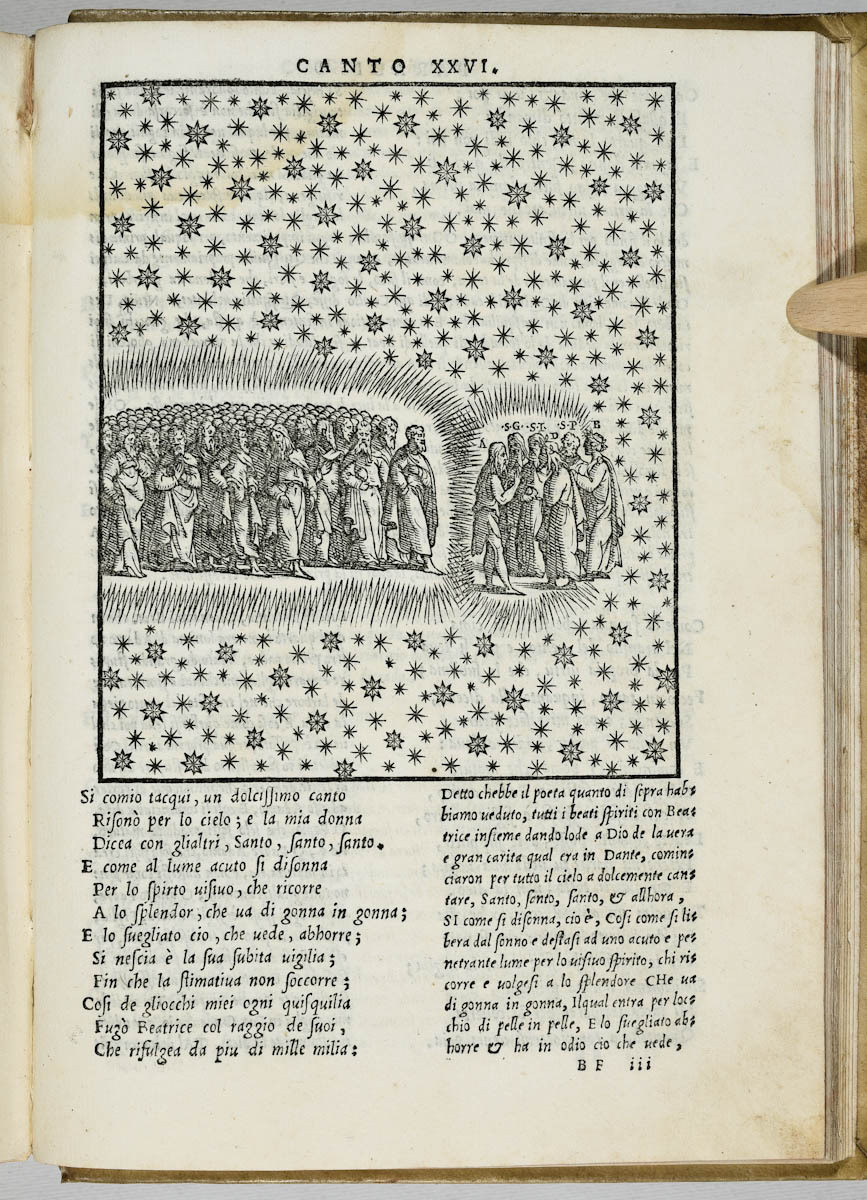 CANTO XXVI.
A ·S·G· ·S·I· D ·S·P· B
Si comio tacqui, un dolcissimo canto
Risonò per lo cielo; e la mia donna
Dicea con glialtri, Santo, santo, santo.
E come al lume acuto si disonna
Per lo spirto uisiuo, che ricorre
A lo splendor, che ua di gonna in gonna;
E lo suegliato cio, che uede, abhorre;
Si nescia è la sua subita uigilia;
Fin che la stimatiua non soccorre;
Cosi de gliocchi miei ogni quisquilia
Fugò Beatrice col raggio de suoi,
Che rifulgea da piu di mille milia:
Detto chebbe il poeta quanto di sopra hab-
biamo ueduto, tutti i beati spiriti con Bea-
trice insieme dando lode a Dio de la uera
e gran carita qual era in Dante, comin-
ciaron per tutto il cielo a dolcemente can-
tare, Santo, santo, santo, & allhora,
SI come si disonna, cio è, Cosi come si li-
bera dal sonno e destasi ad uno acuto e pe-
netrante lume per lo uisiuo spirito, chi ri-
corre e uolgesi a lo splendore CHe ua
di gonna in gonna, Ilqual entra per loc-
chio di pelle in pelle, E lo suegliato ab-
horre & ha in odio cio che uede,
BF iii